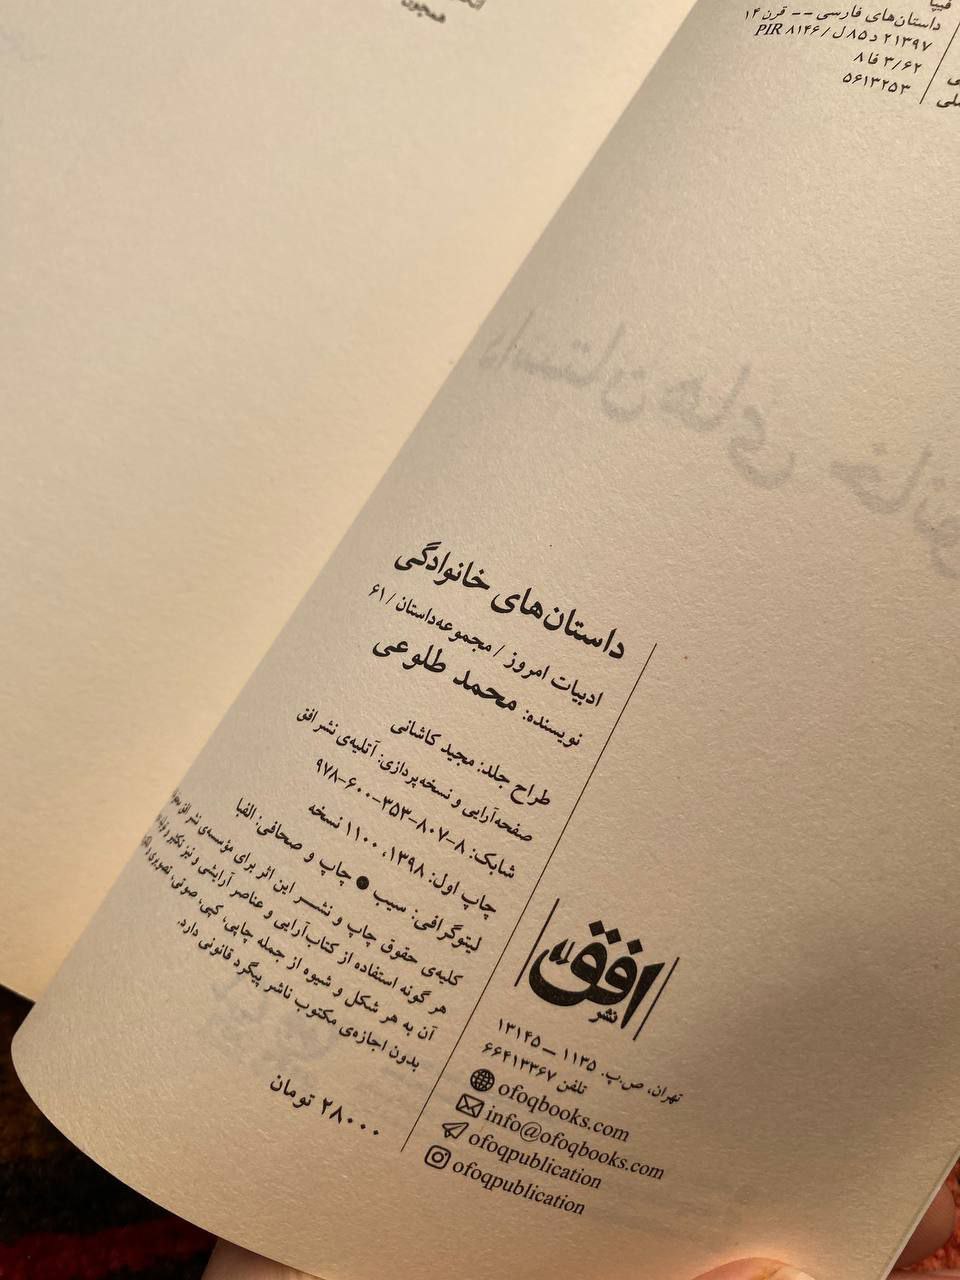 همچون
فیپا
داستان‌های فارسی -- قرن ۱۴
۲۱۳۹۷ د ۸۵ ل / PIR ۸۱۴۶
۸ فا ۳/۶۲
۵۶۱۳۲۵۳
داستان‌های خانوادگی
ادبیات امروز / مجموعه‌داستان / ۶۱
نویسنده: محمد طلوعی
طراح جلد: مجید کاشانی
صفحه‌آرایی و نسخه‌پردازی: آتلیه‌ی نشر افق
شابک: ۸-۸۰۷-۳۵۳-۶۰۰-۹۷۸
چاپ اول: ۱۳۹۸، ۱۱۰۰ نسخه
لیتوگرافی: سیب ● چاپ و صحافی: الفبا
کلیه‌ی حقوق چاپ و نشر این اثر برای مؤسسه‌ی نشر افق
هر گونه استفاده از کتاب‌آرایی و عناصر آرایشی و نیز تکثیر و تولید
آن به هر شکل و شیوه از جمله چاپی، کپی، صوتی، تصویری و
بدون اجازه‌ی مکتوب ناشر پیگرد قانونی دارد.
۲۸۰۰۰ تومان
نشر افق
تهران، ص.پ. ۱۱۳۵ – ۱۳۱۴۵
تلفن ۶۶۴۱۳۳۶۷
ofoqbooks.com
info@ofoqbooks.com
ofoqpublication
ofoqpublication